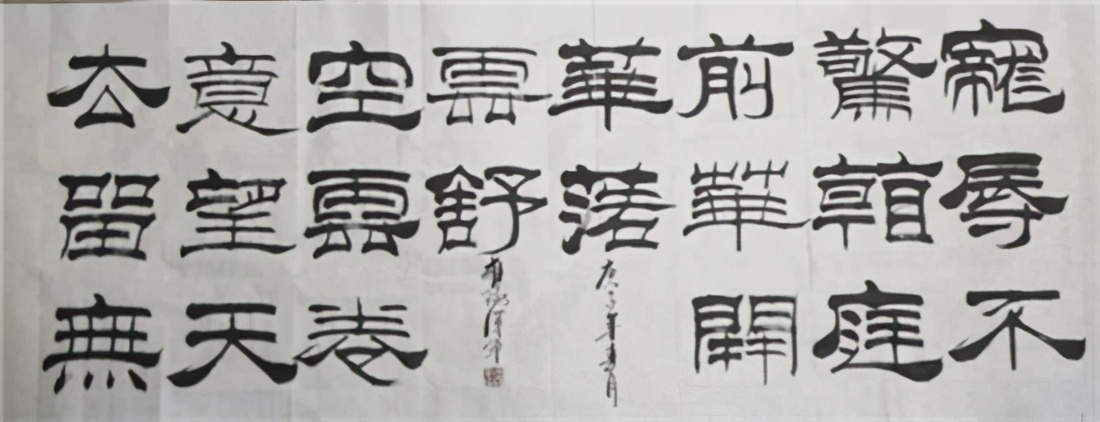 寵辱不
驚看庭
前華開
華落
庚子年
去留無
意望天
空雲卷
雲舒